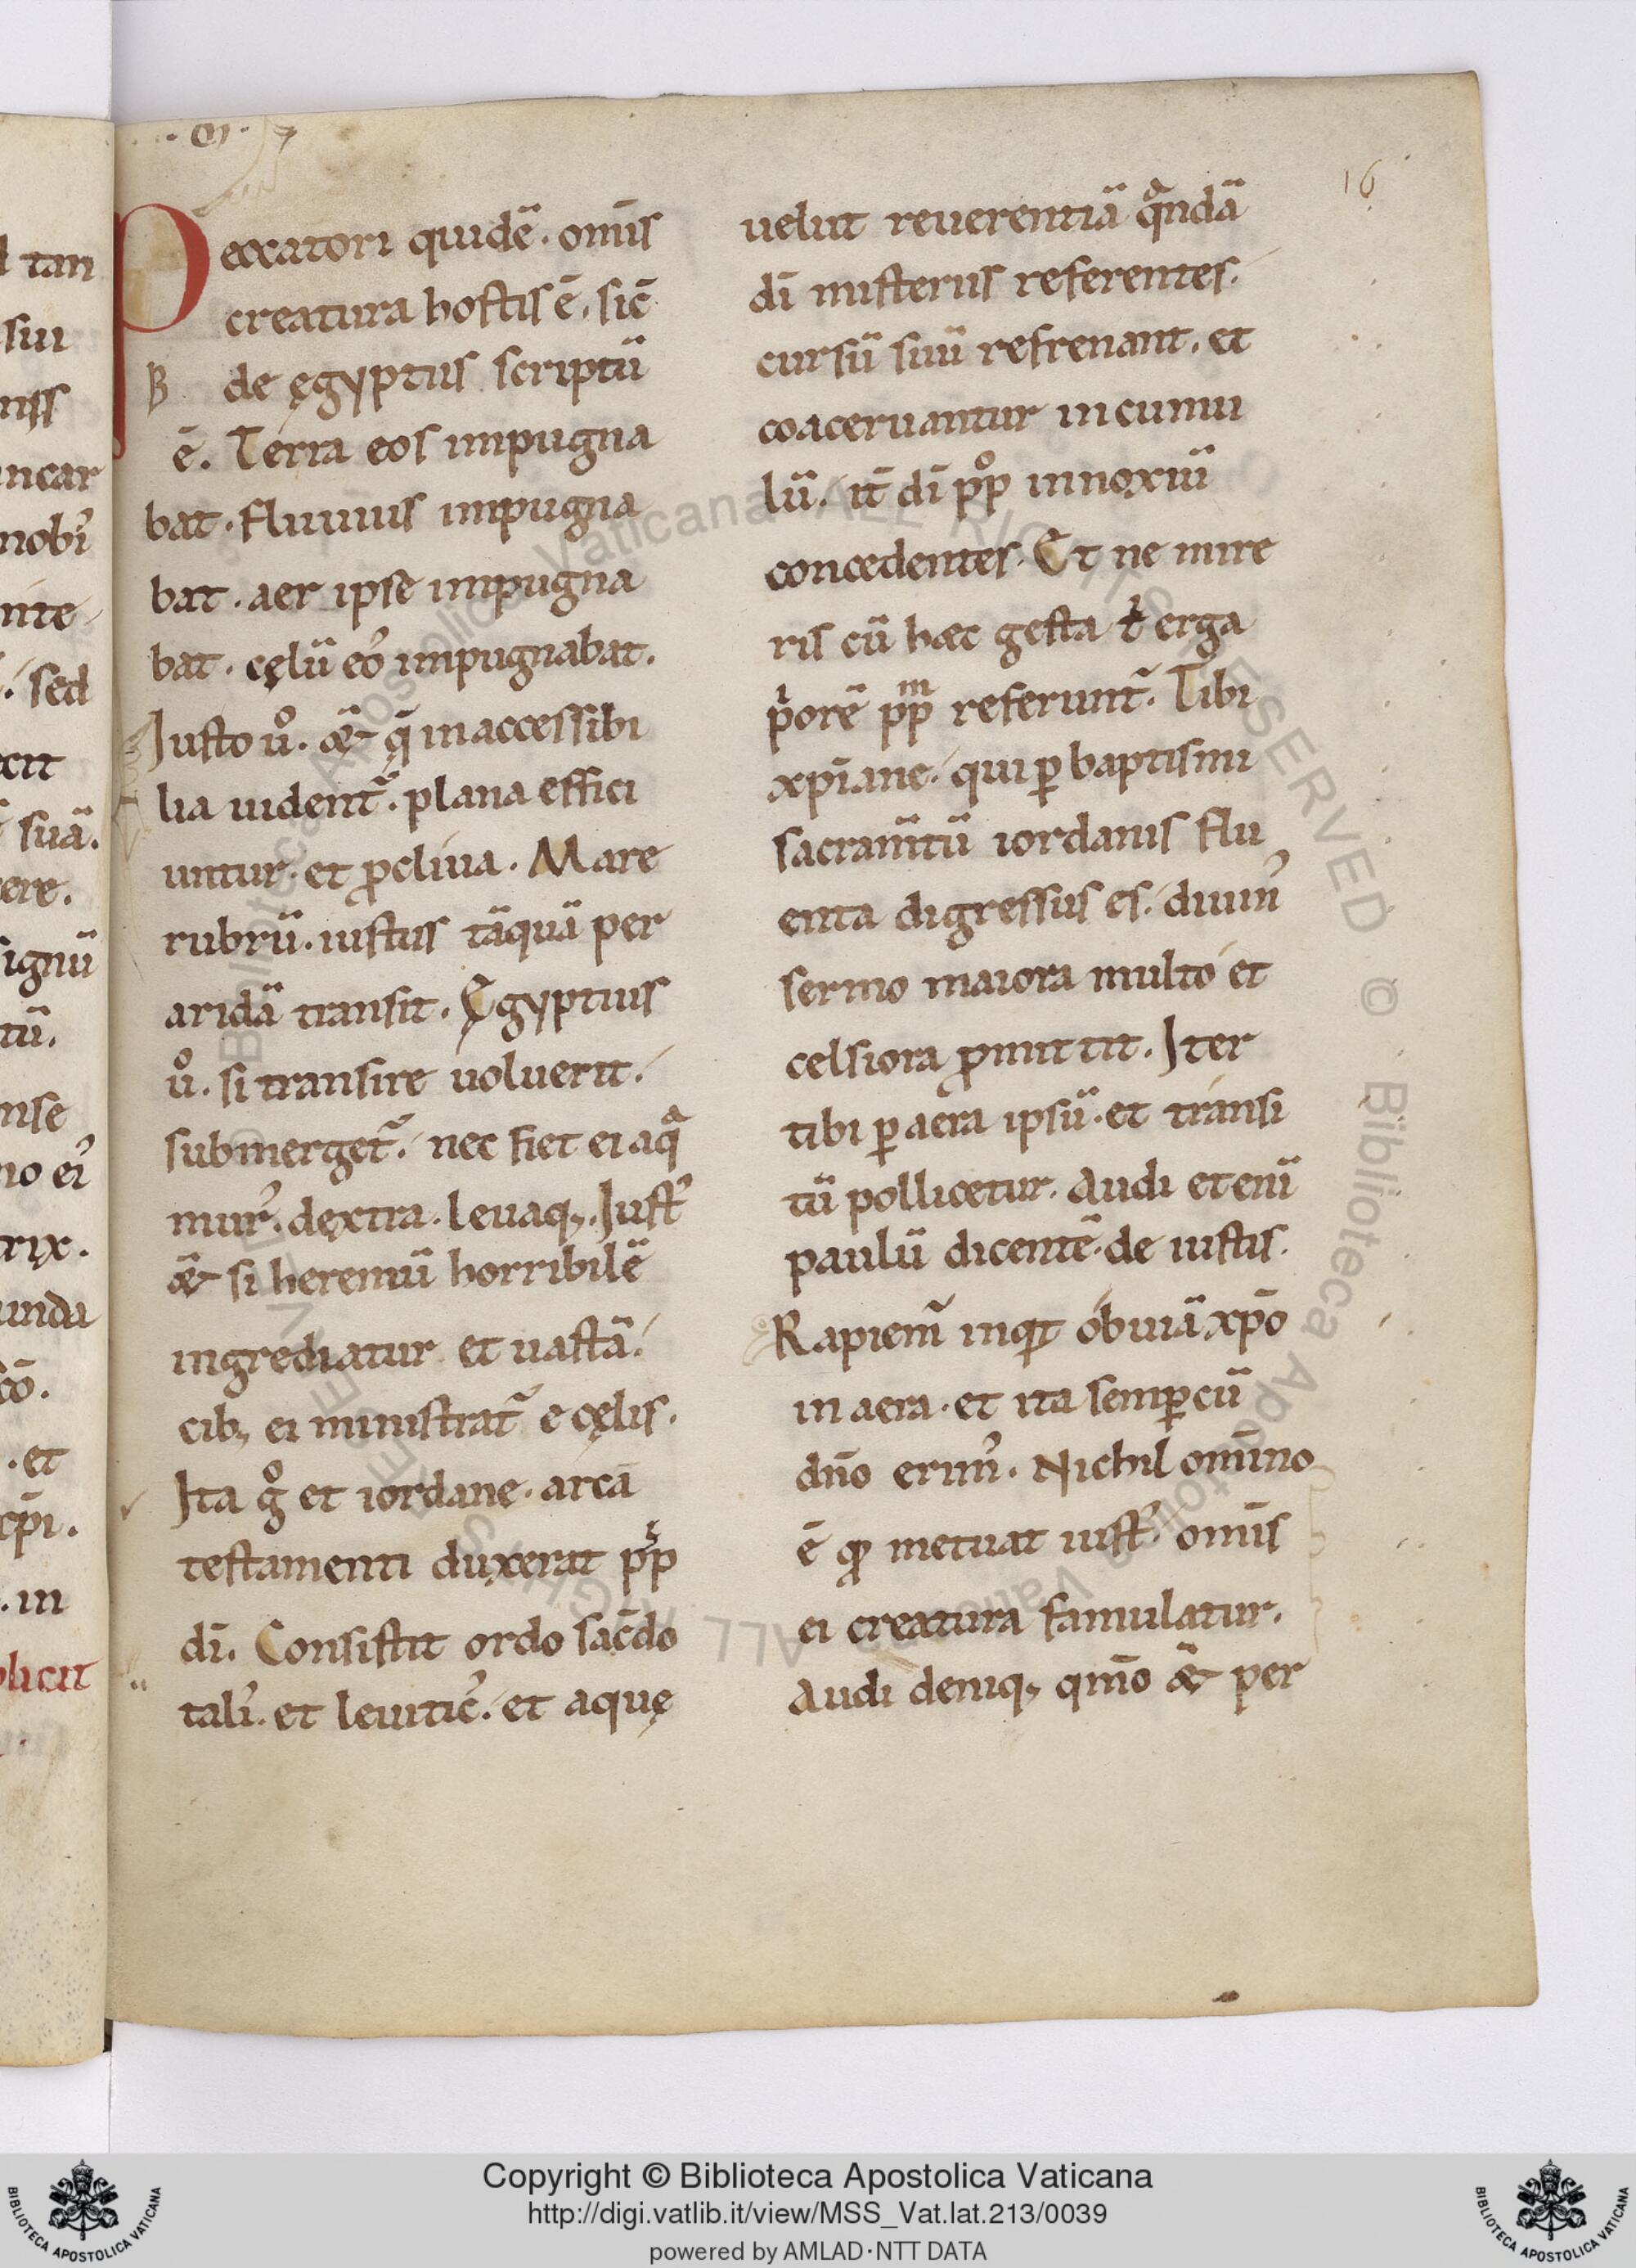 Peccatori quidē. om̄is
creatura hostis ē. sic̄
de ęgyptiis scriptū
ē. Terra eos impugna
bat. fluuius impugna
bat. aer ipse impugna
bat. cęlū eoꝰ impugnabat.
Iusto ůo. & q̄ inaccessibi
lia uident᷑. plana effici
untur. et ꝓcliua. Mare
rubrū. iustus tāquā per
aridā transit. Ęgyptius
uͦ. si transire uoluerit.
submerget᷑. nec fiet ei aqͣ
murꝰ. dextra. leuaq;. Iustꝰ
& si heremū horribilē
ingrediatur et uastā.
cib; ei ministrat᷑ e cęlis.
Ita gͦ et iordane. arcā
testamenti duxerat pp̄s
dī. Consistit ordo sac̄do
talꝭ. et leuiticꝰ. et aquę
16
uelut reuerentiā qͣndā
dī misteriis referentes.
cursū suū refrenant. et
coaceruantur in cumu
lū. it̄ dī ppͦ innoxiū
concedentes. Et ne mire
ris cū hæc gesta t̄ erga
pͥorē ppᵐ referunt᷑. Tibi
xp̄iane. qui ꝑ baptismi
sacram̄tū iordanis flu
enta digressus es. diuinꝰ
sermo maiora multo et
celsiora ꝓmittit. Iter
tibi ꝑ aera ipsū. et transi
tū pollicetur. Audi etenī
paulū dicentē. de iustis.
Rapiem᷑ inqͥt obuiā xp̄o
in aera. et ita semꝑ cū
dn̄o erimꝰ. Nichil om̄ino
ē qͦ metuat iustꝰ. om̄is
ei creatura famulatur.
Audi deniq; qm̄o & per
tan
sui
niss
incar
nobꝭ
sed
suā.
ere.
ignū
tū.
nse
rix.
unda
et
in
plicit
Copyright © Biblioteca Apostolica Vaticana
http://digi.vatlib.it/view/MSS_Vat.lat.213/0039
powered by AMLAD·NTT DATA
BIBLIOTECA APOSTOLICA VATICANA
BIBLIOTECA APOSTOLICA VATICANA